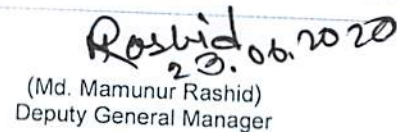 Rashid
23.06.2020
(Md. Mamunur Rashid)
Deputy General Manager